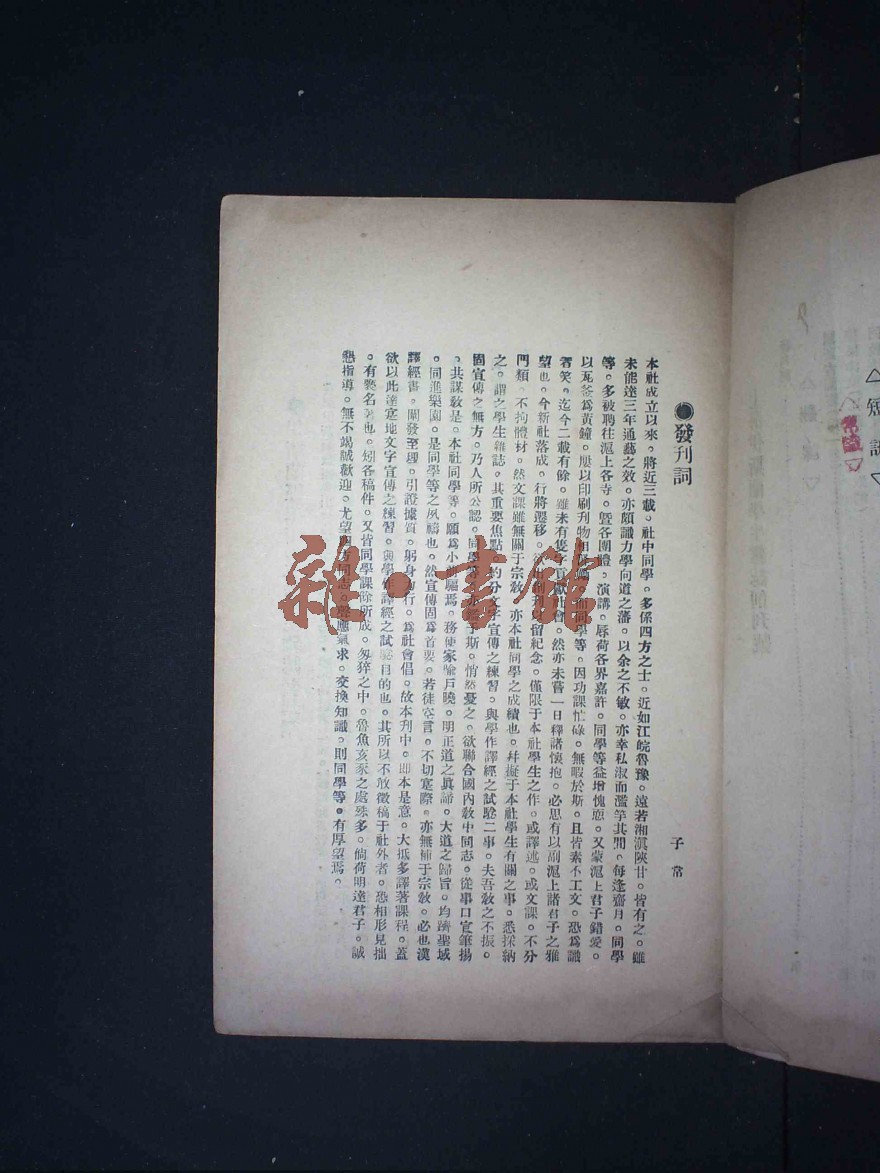 ●發刊詞
子常
本社成立以來。將近三載。社中同學。多係四方之士。近如江皖魯豫。遠若湘滇陝甘。皆有之。雖
未能達三年通藝之效。亦頗識力學向道之藩。以余之不敏。亦幸私淑而濫竽其間。每逢齋月。同學
等。多被聘往滬上各寺。曁各團體。演講。辱荷各界嘉許。同學等益增愧恧。又蒙滬上君子錯愛。
以瓦釜爲黃鐘。屢以印刷刊物相 而同學等。因功課忙碌。無暇於斯。且皆素不工文。恐爲識
者笑。迄今二載有餘。雖未有隻字貢獻社會。然亦未嘗一日釋諸懷抱。必思有以副滬上諸君子之雅
望也。今新社落成。行將遷移。 出創刊以留紀念。僅限于本社學生之作。或譯述。或文課。不分
門類。不拘體材。然文課雖無關于宗敎。亦本社同學之成績也。幷擬于本社學生有關之事。悉採納
之。謂之學生雜誌。其重要焦點。約分文字宣傳之練習。與學作譯經之試驗二事。夫吾敎之不振。
固宣傳之無方。乃人所公認。同學等 于斯。悄然憂之。欲聯合國內敎中同志。從事口宣筆揚
。共謀敎是。本社同學等。願爲小前驅焉。務使家喩戶曉。明正道之眞諦。大道之歸旨。均躋聖域
。同進樂園。是同學等之夙禱也。然宣傳固爲首要。若徒空言。不切寔際。亦無補于宗敎。必也漢
譯經書。闡發至理。引證據質。躬身 行。爲社會倡。故本刊中。卽本是意。大抵多譯著課程。蓋
欲以此達寔地文字宣傳之練習。與學作譯經之試驗目的也。其所以不敢徵稿于社外者。恐相形見拙
。有褻名著也。矧各稿件。又皆同學課餘所成。匆猝之中。魯魚亥豕之處殊多。倘荷明達君子。誠
懇指導。無不竭誠歡迎。尤望四方同志。聲應氣求。交換知識。則同學等。有厚望焉。
△短
▽
雜·書館